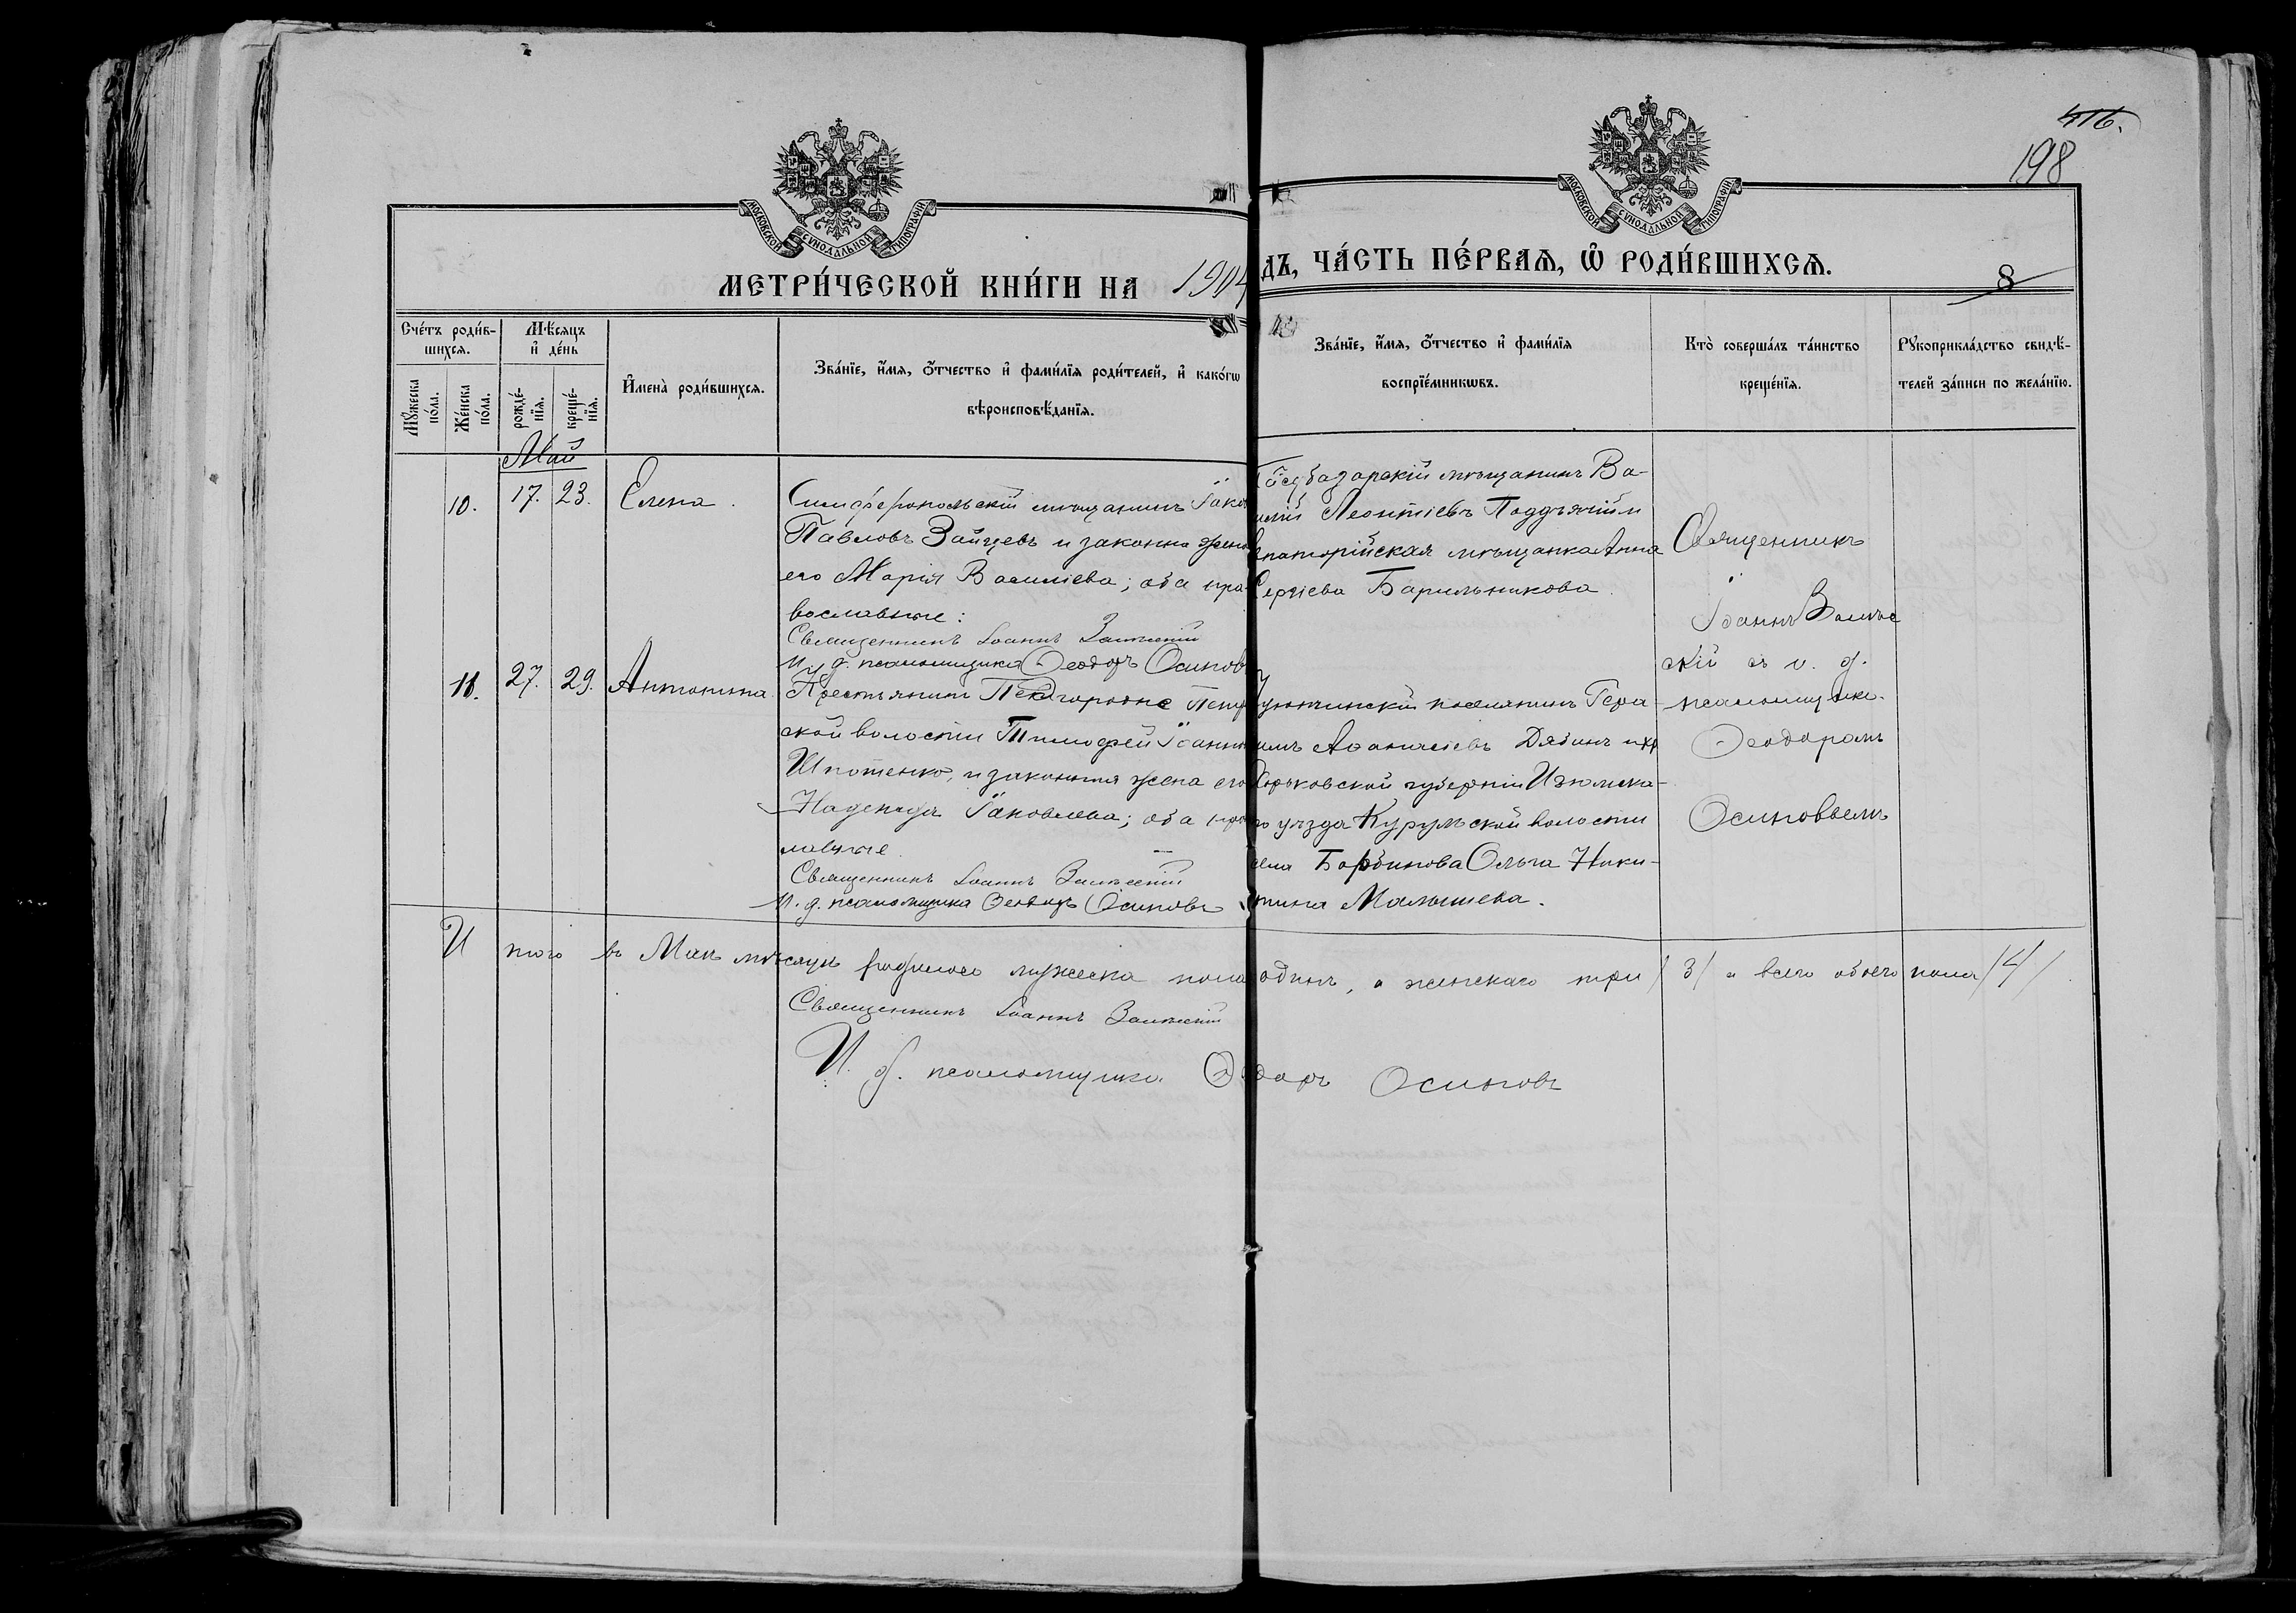 416.
198
МОСКОВСКОЙ СѴНОДАЛЬНОЙ ТИПОГРАФІИ
МОСКОВСКОЙ СѴНОДАЛЬНОЙ ТИПОГРАФІИ
МЕТРИ́ЧЕСКОЙ КНИ́ГИ НА 1904
ДЪ, ЧА́СТЬ ПЕ́РВАѦ, Ѡ҆ РОДИ́ВШИХСѦ.
8
Сче́тъ роди́в-
шихсѧ.
Мѣ́сѧцъ
и҆ де́нь
Мꙋ́жеска
по́ла.
Же́нска
по́ла.
рожде́-
нїѧ.
креще́-
нїѧ.
И҆мена̀ роди́вшихсѧ.
Зва́нїе, и҆́мѧ, ѻ҆́тчество и҆ фами́лїѧ роди́телей, и҆ како́гѡ
вѣроисповѣ́данїѧ.
Зва́нїе, и҆́мѧ, ѻ҆́тчество и҆ фами́лїѧ
воспрїе́мникѡвъ.
Кто̀ соверша́лъ та́инство
креще́нїѧ.
Рꙋкоприкла́дство свидѣ́-
телей за́писи по жела́нїю.
Май
10. 17. 23. Елена.
Симферопольскій мѣщанинъ Іако
Павловъ Зайцевъ и законна жена
его Марія Василіева; оба пра-
вославные:
Священникъ Іоаннъ
И. д. псаломщика Ѳеодоръ Осипов
базарскій мѣщанинъ Ва-
илій Леонтіевъ Поддъячій и
впаторійская мѣщанка Анна
Сергіева Барильникова.
Священникъ
Іоаннъ
скій съ и. д.
псаломщика
Ѳеодоромъ
Осиповвемъ
11. 27. 29. Антонина
Крестьянинъ
ской волости Тимофей Іоанн
Шпотенко, и законная жена его
Надежда Іаковлева; оба пра
лавные
Священникъ Іоаннъ
И. д. псаломщика Ѳеодоръ Осиповъ
поселянинъ Гера-
имъ Аѳанасіевъ Дядинъ и
Харьковской губерніи Изюмска-
го уѣзда Курульской волости
села Ольга Ники-
тина Малышева.
Итого въ Маѣ мѣсяцѣ родилось мужеска пола одинъ, а женскаго три /3/ а всего обоего пола /4/
Священникъ Іоаннъ
И. д. псаломщика Ѳеодоръ Осиповъ